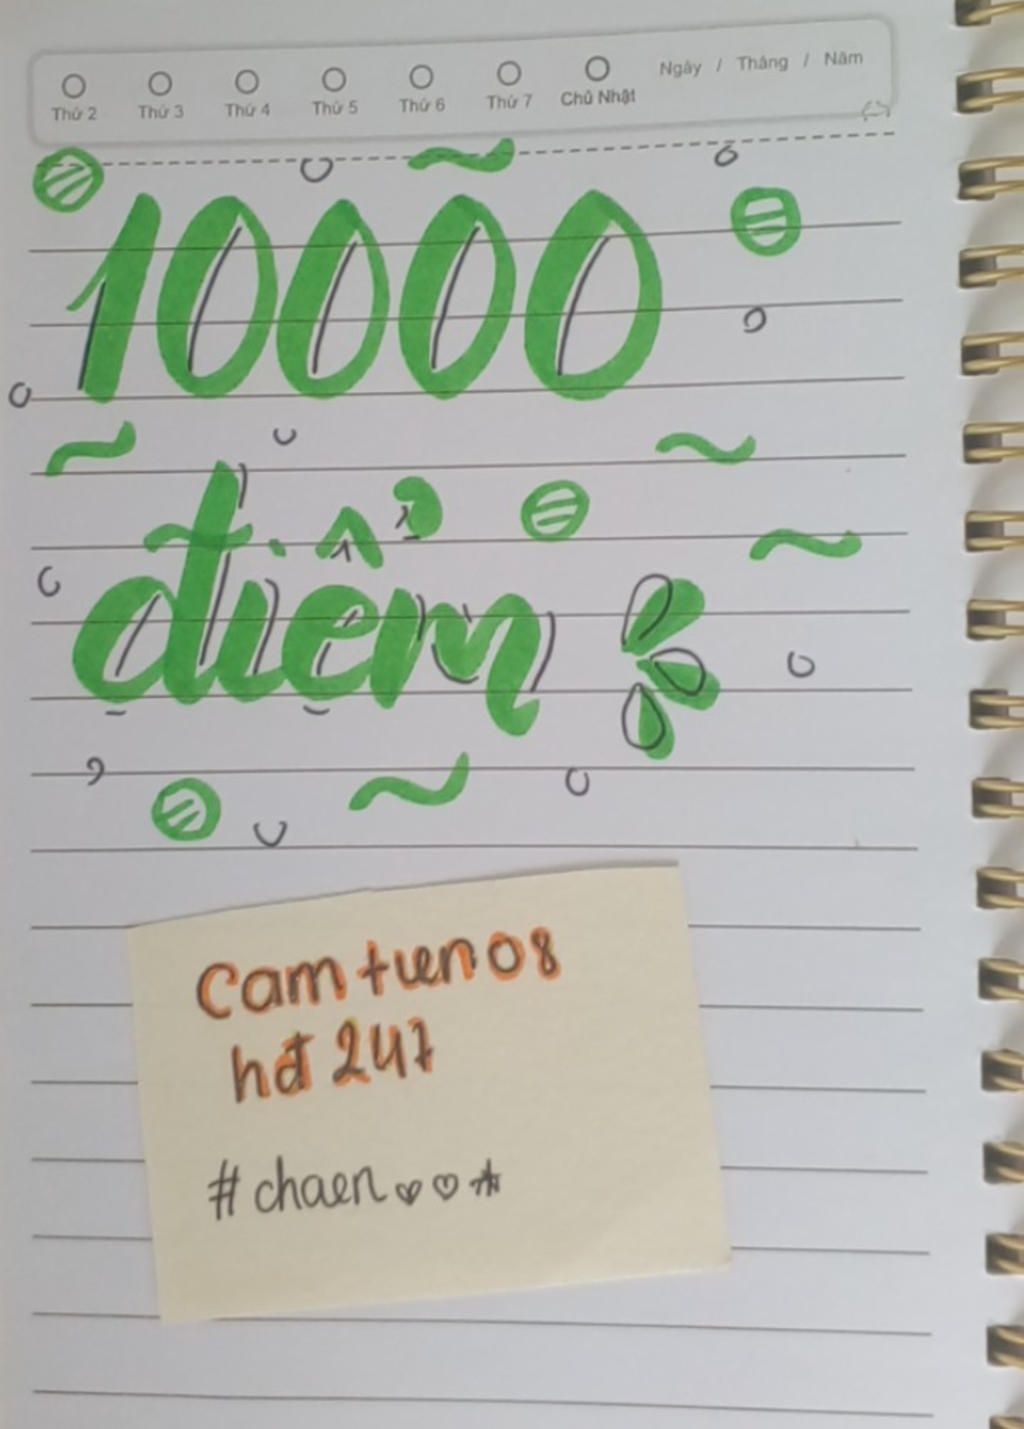 Thứ 2 Thứ 3 Thứ 4 Thứ 5 Thứ 6 Thứ 7 Chủ Nhật Ngày / Tháng / Năm
10000
điểm
Camtuen08
hđ247
#chaen